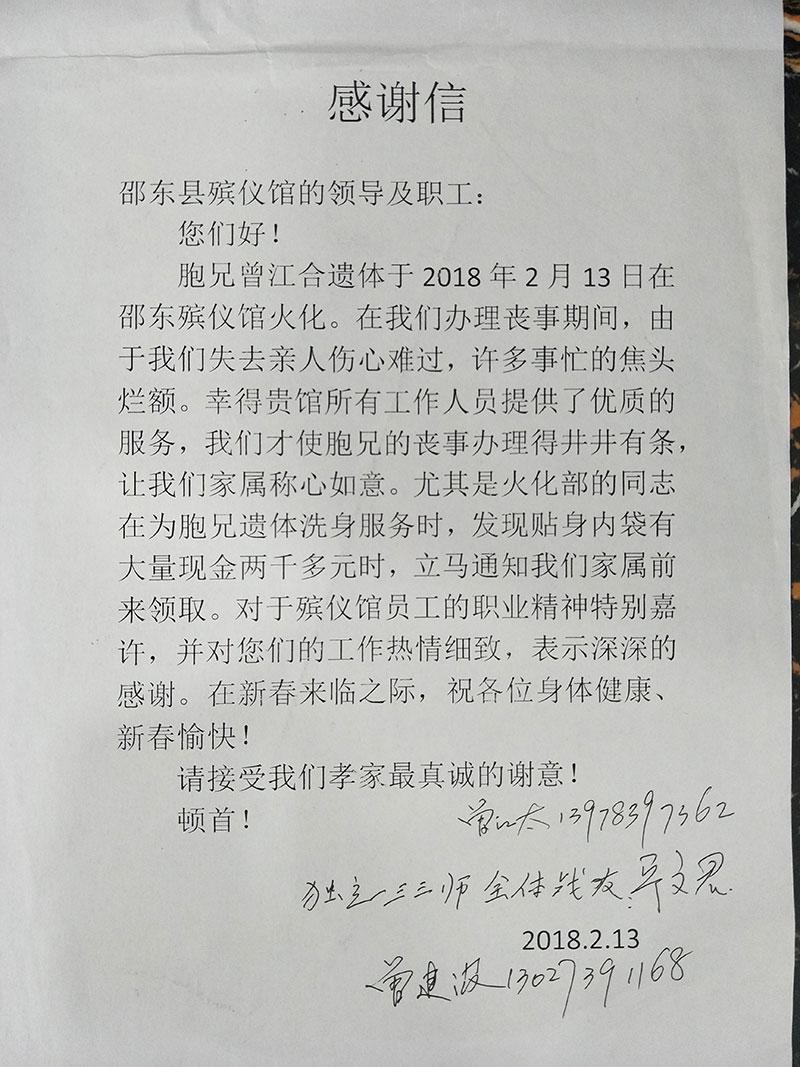 感谢信
邵东县殡仪馆的领导及职工：
您们好！
胞兄曾江合遗体于 2018 年 2 月 13 日在
邵东殡仪馆火化。在我们办理丧事期间，由
于我们失去亲人伤心难过，许多事忙的焦头
烂额。幸得贵馆所有工作人员提供了优质的
服务，我们才使胞兄的丧事办理得井井有条，
让我们家属称心如意。尤其是火化部的同志
在为胞兄遗体洗身服务时，发现贴身内袋有
大量现金两千多元时，立马通知我们家属前
来领取。对于殡仪馆员工的职业精神特别嘉
许，并对您们的工作热情细致，表示深深的
感谢。在新春来临之际，祝各位身体健康、
新春愉快！
请接受我们孝家最真诚的谢意！
顿首！
曾江太 13978397362
独立三三师 全体战友：
2018.2.13
曾建波 13027391168